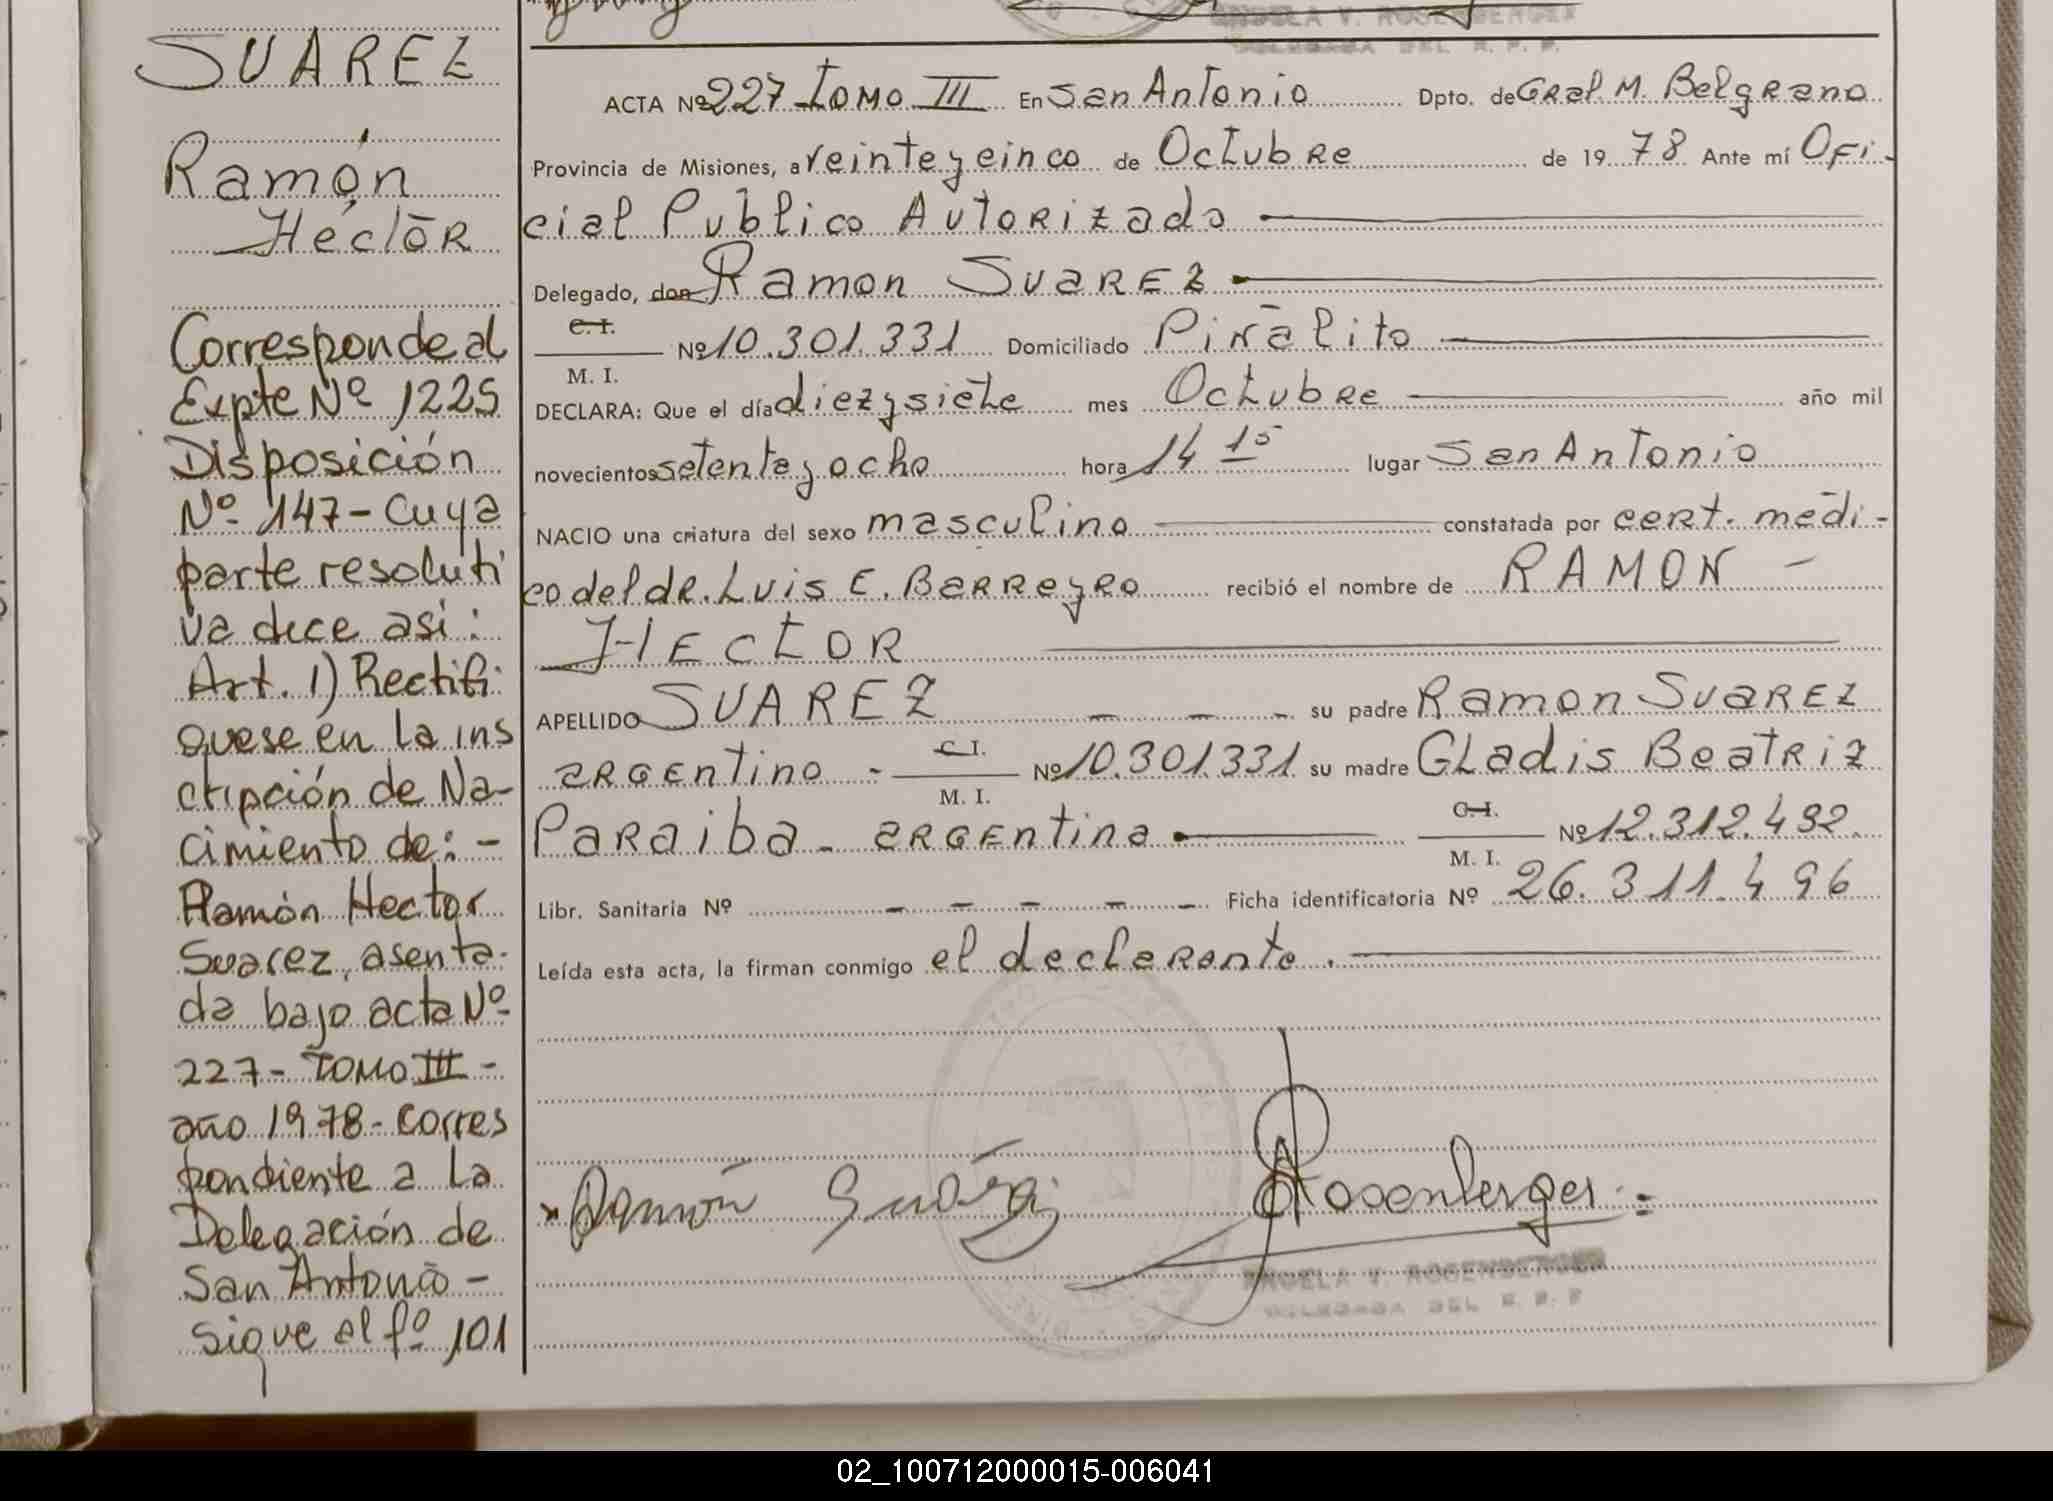 SUAREZ
Ramón
Héctor
Corresponde al
Expte Nº 1225
Disposición
Nº 147 - Cuya
parte resoluti
va dice asi:
Art. 1) Rectifi
quese en la ins
cripción de Na-
cimiento de: -
Ramón Hector
Suarez, asenta-
da bajo acta Nº
227 - TOMO III -
año 1978 - Corres
pondiente a La
Delegación de
San Antonio -
sigue al fº 101
ANGELA V. ROSENBERGER
DELEGADA DEL R. P. P.
ACTA Nº 227 Tomo III En San Antonio Dpto. de Gral M. Belgrano
Provincia de Misiones, a veinteycinco de Octubre de 19 78 Ante mí Ofi-
cial Publico Autorizado
Delegado, don Ramon Suarez
C. I.
M. I. Nº 10.301.331 Domiciliado Piñalito
DECLARA: Que el día diezysiete mes Octubre año mil
novecientos setentayocho hora 14 15 lugar San Antonio
NACIO una criatura del sexo masculino constatada por cert. medi-
co del dr. Luis E. Barreyro recibió el nombre de RAMON -
HECTOR
APELLIDO SUAREZ - - - su padre Ramon Suarez
argentino - C.I.
M. I. Nº 10.301.331 su madre Gladis Beatriz
Paraiba - argentina C.I.
M. I. Nº 12.312.492
Libr. Sanitaria Nº - - - - - Ficha identificatoria Nº 26.311.496
Leída esta acta, la firman conmigo el declarante.
Ramón Suárez Rosenberger
ANGELA V. ROSENBERGER
DELEGADA DEL R. P. P
02_100712000015-006041